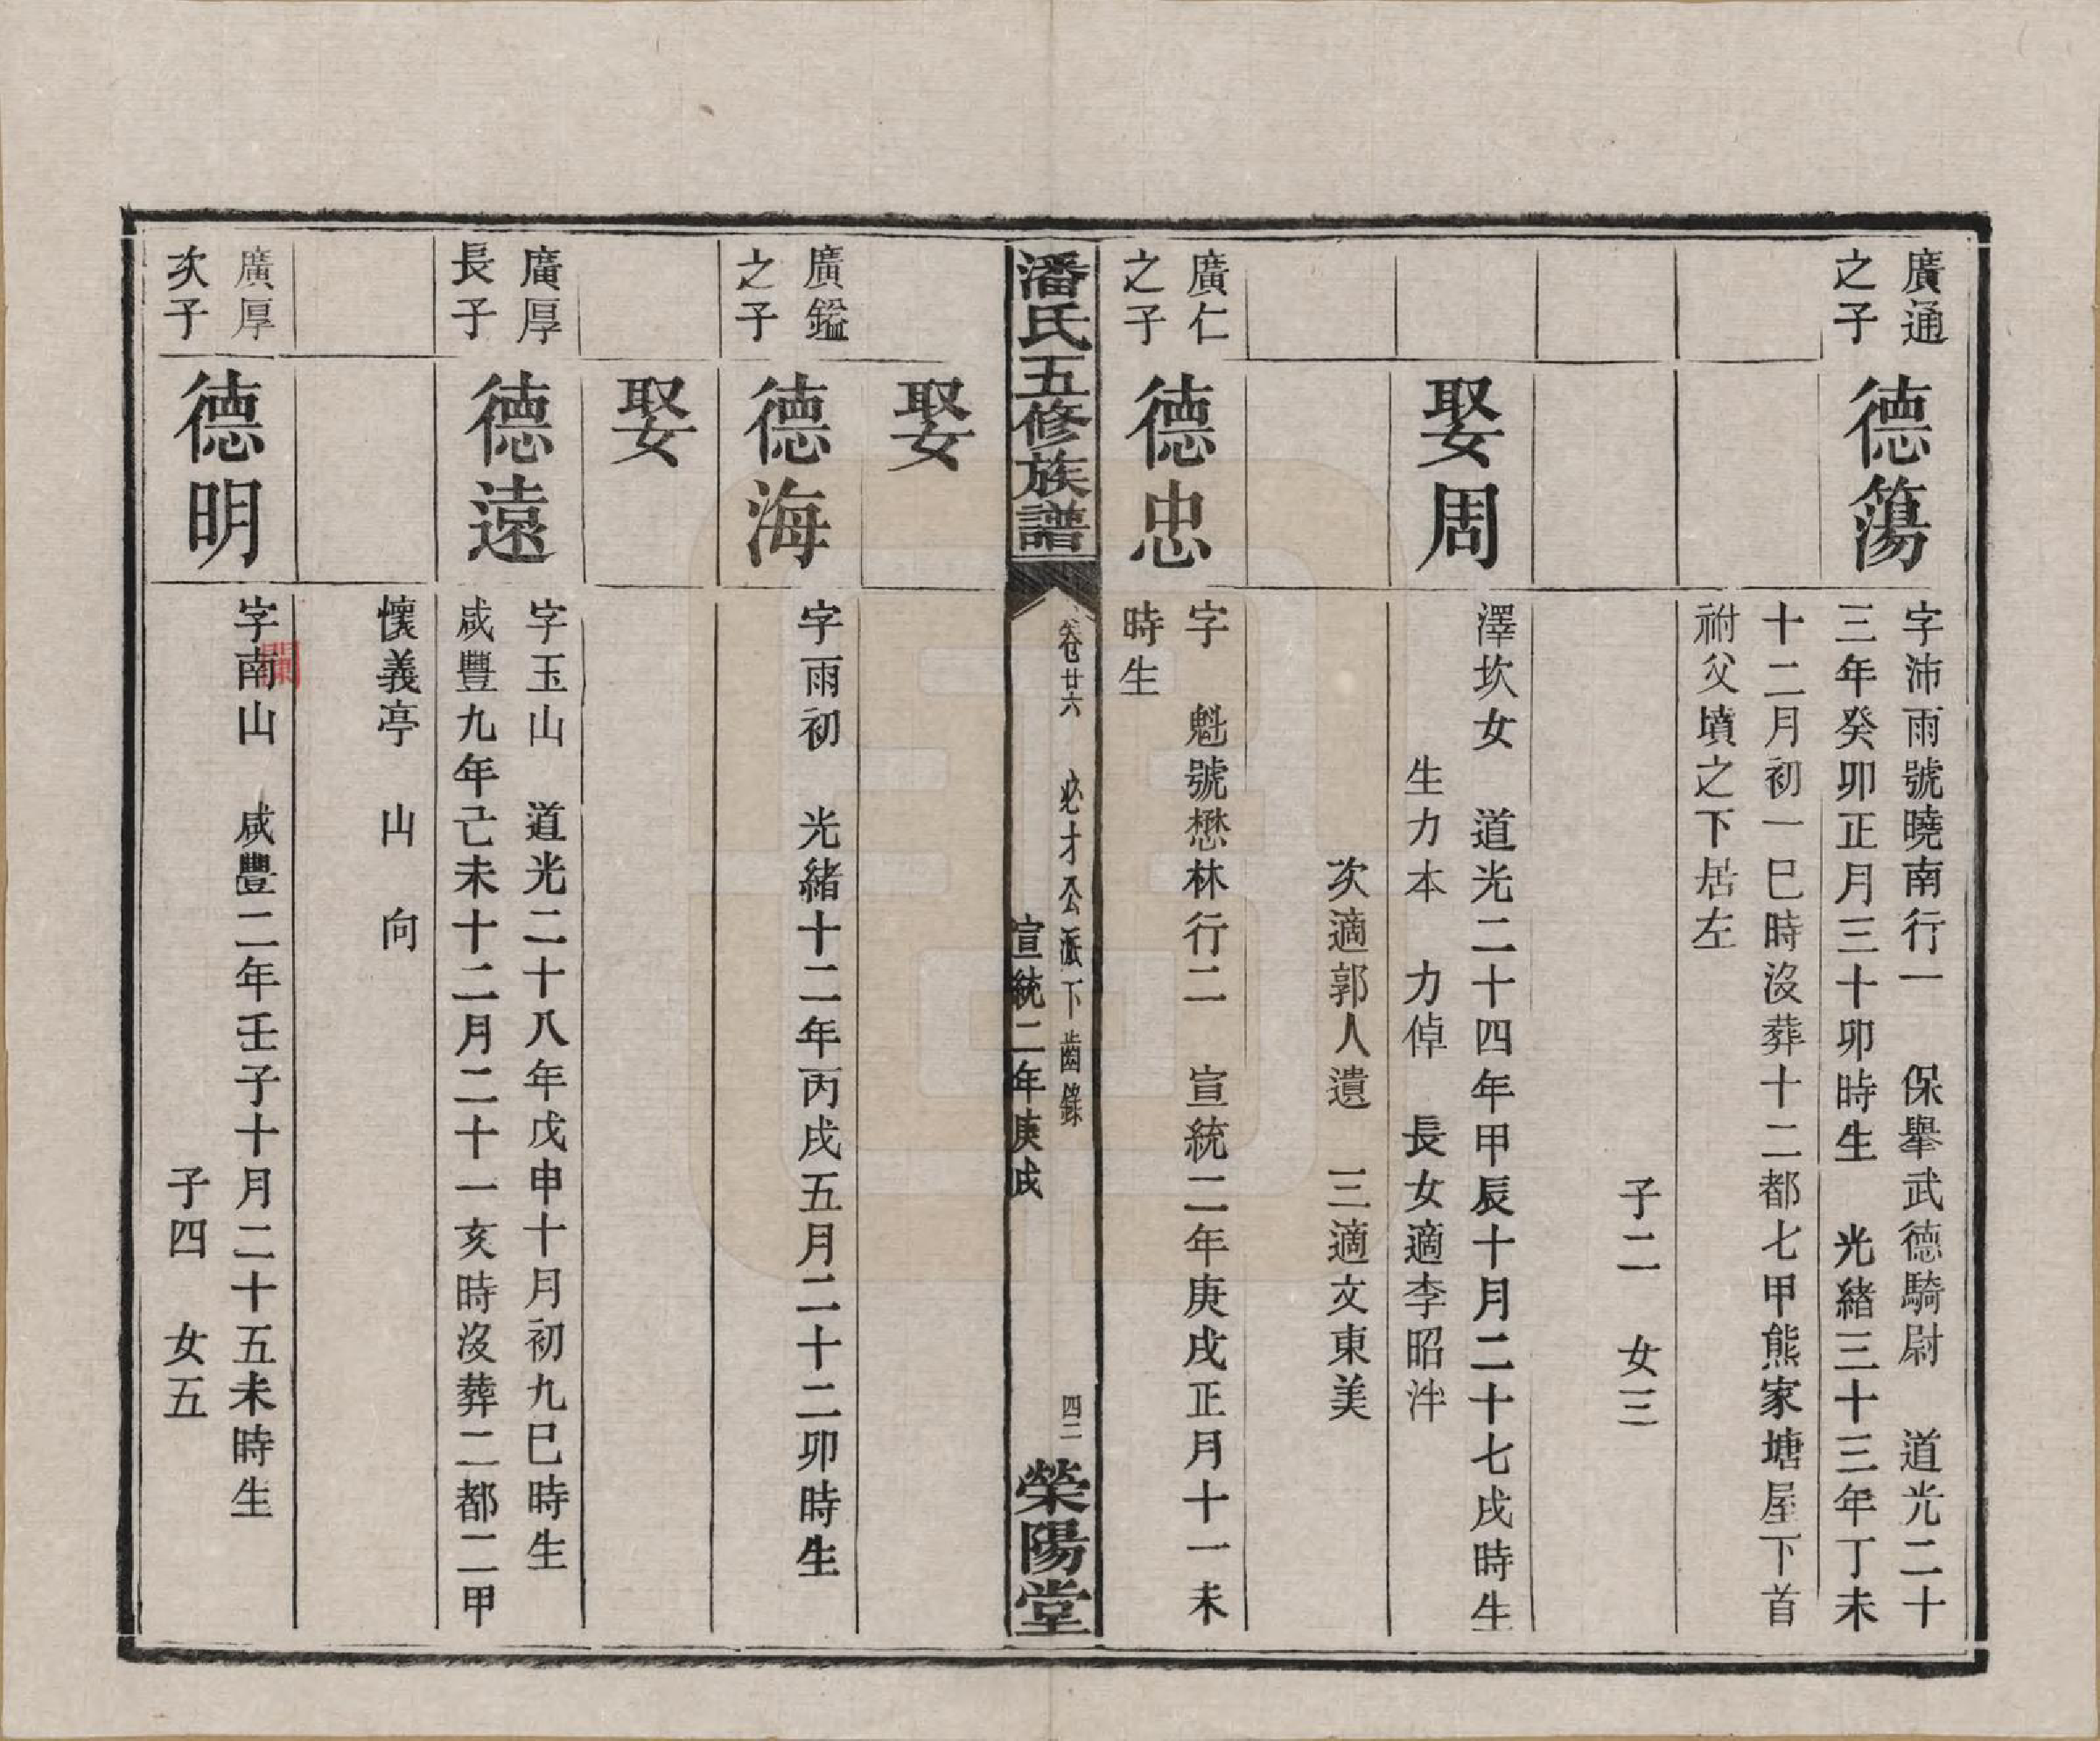 廣通
之子
德簜
字沛雨號曉南行一　保舉武德騎尉　道光二十
三年癸卯正月三十卯時生　光緒三十三年丁未
十二月初一巳時沒葬十二都七甲熊家塘屋下首
祔父墳之下居左
子二　女三
娶周
澤坎女　道光二十四年甲辰十月二十七戌時生
生力本　力倬　長女適李昭泮
次適郭人遺　三適文東美
廣仁
之子
德忠
字　魁號懋林行二　宣統二年庚戌正月十一未
時生
潘氏五修族譜
卷廿六　必才公派下齒錄
宣統二年庚戌
四二
榮陽堂
娶
廣鑑
之子
德海
字雨初　光緒十二年丙戌五月二十二卯時生
娶
廣厚
長子
德遠
字玉山　道光二十八年戊申十月初九巳時生
咸豐九年己未十二月二十一亥時沒葬二都二甲
懷義亭　山　向
廣厚
次子
德明
字南山　咸豐二年壬子十月二十五未時生
子四　女五